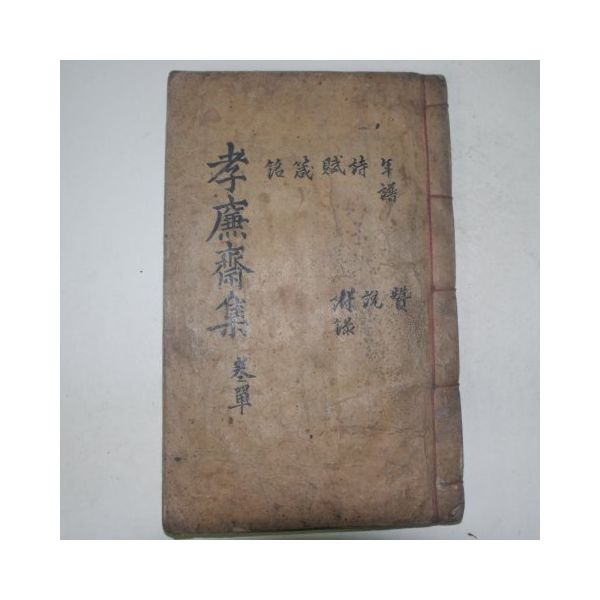 孝廉齋集 卷單
年譜
詩
賦
箴
銘
贊
說
附錄